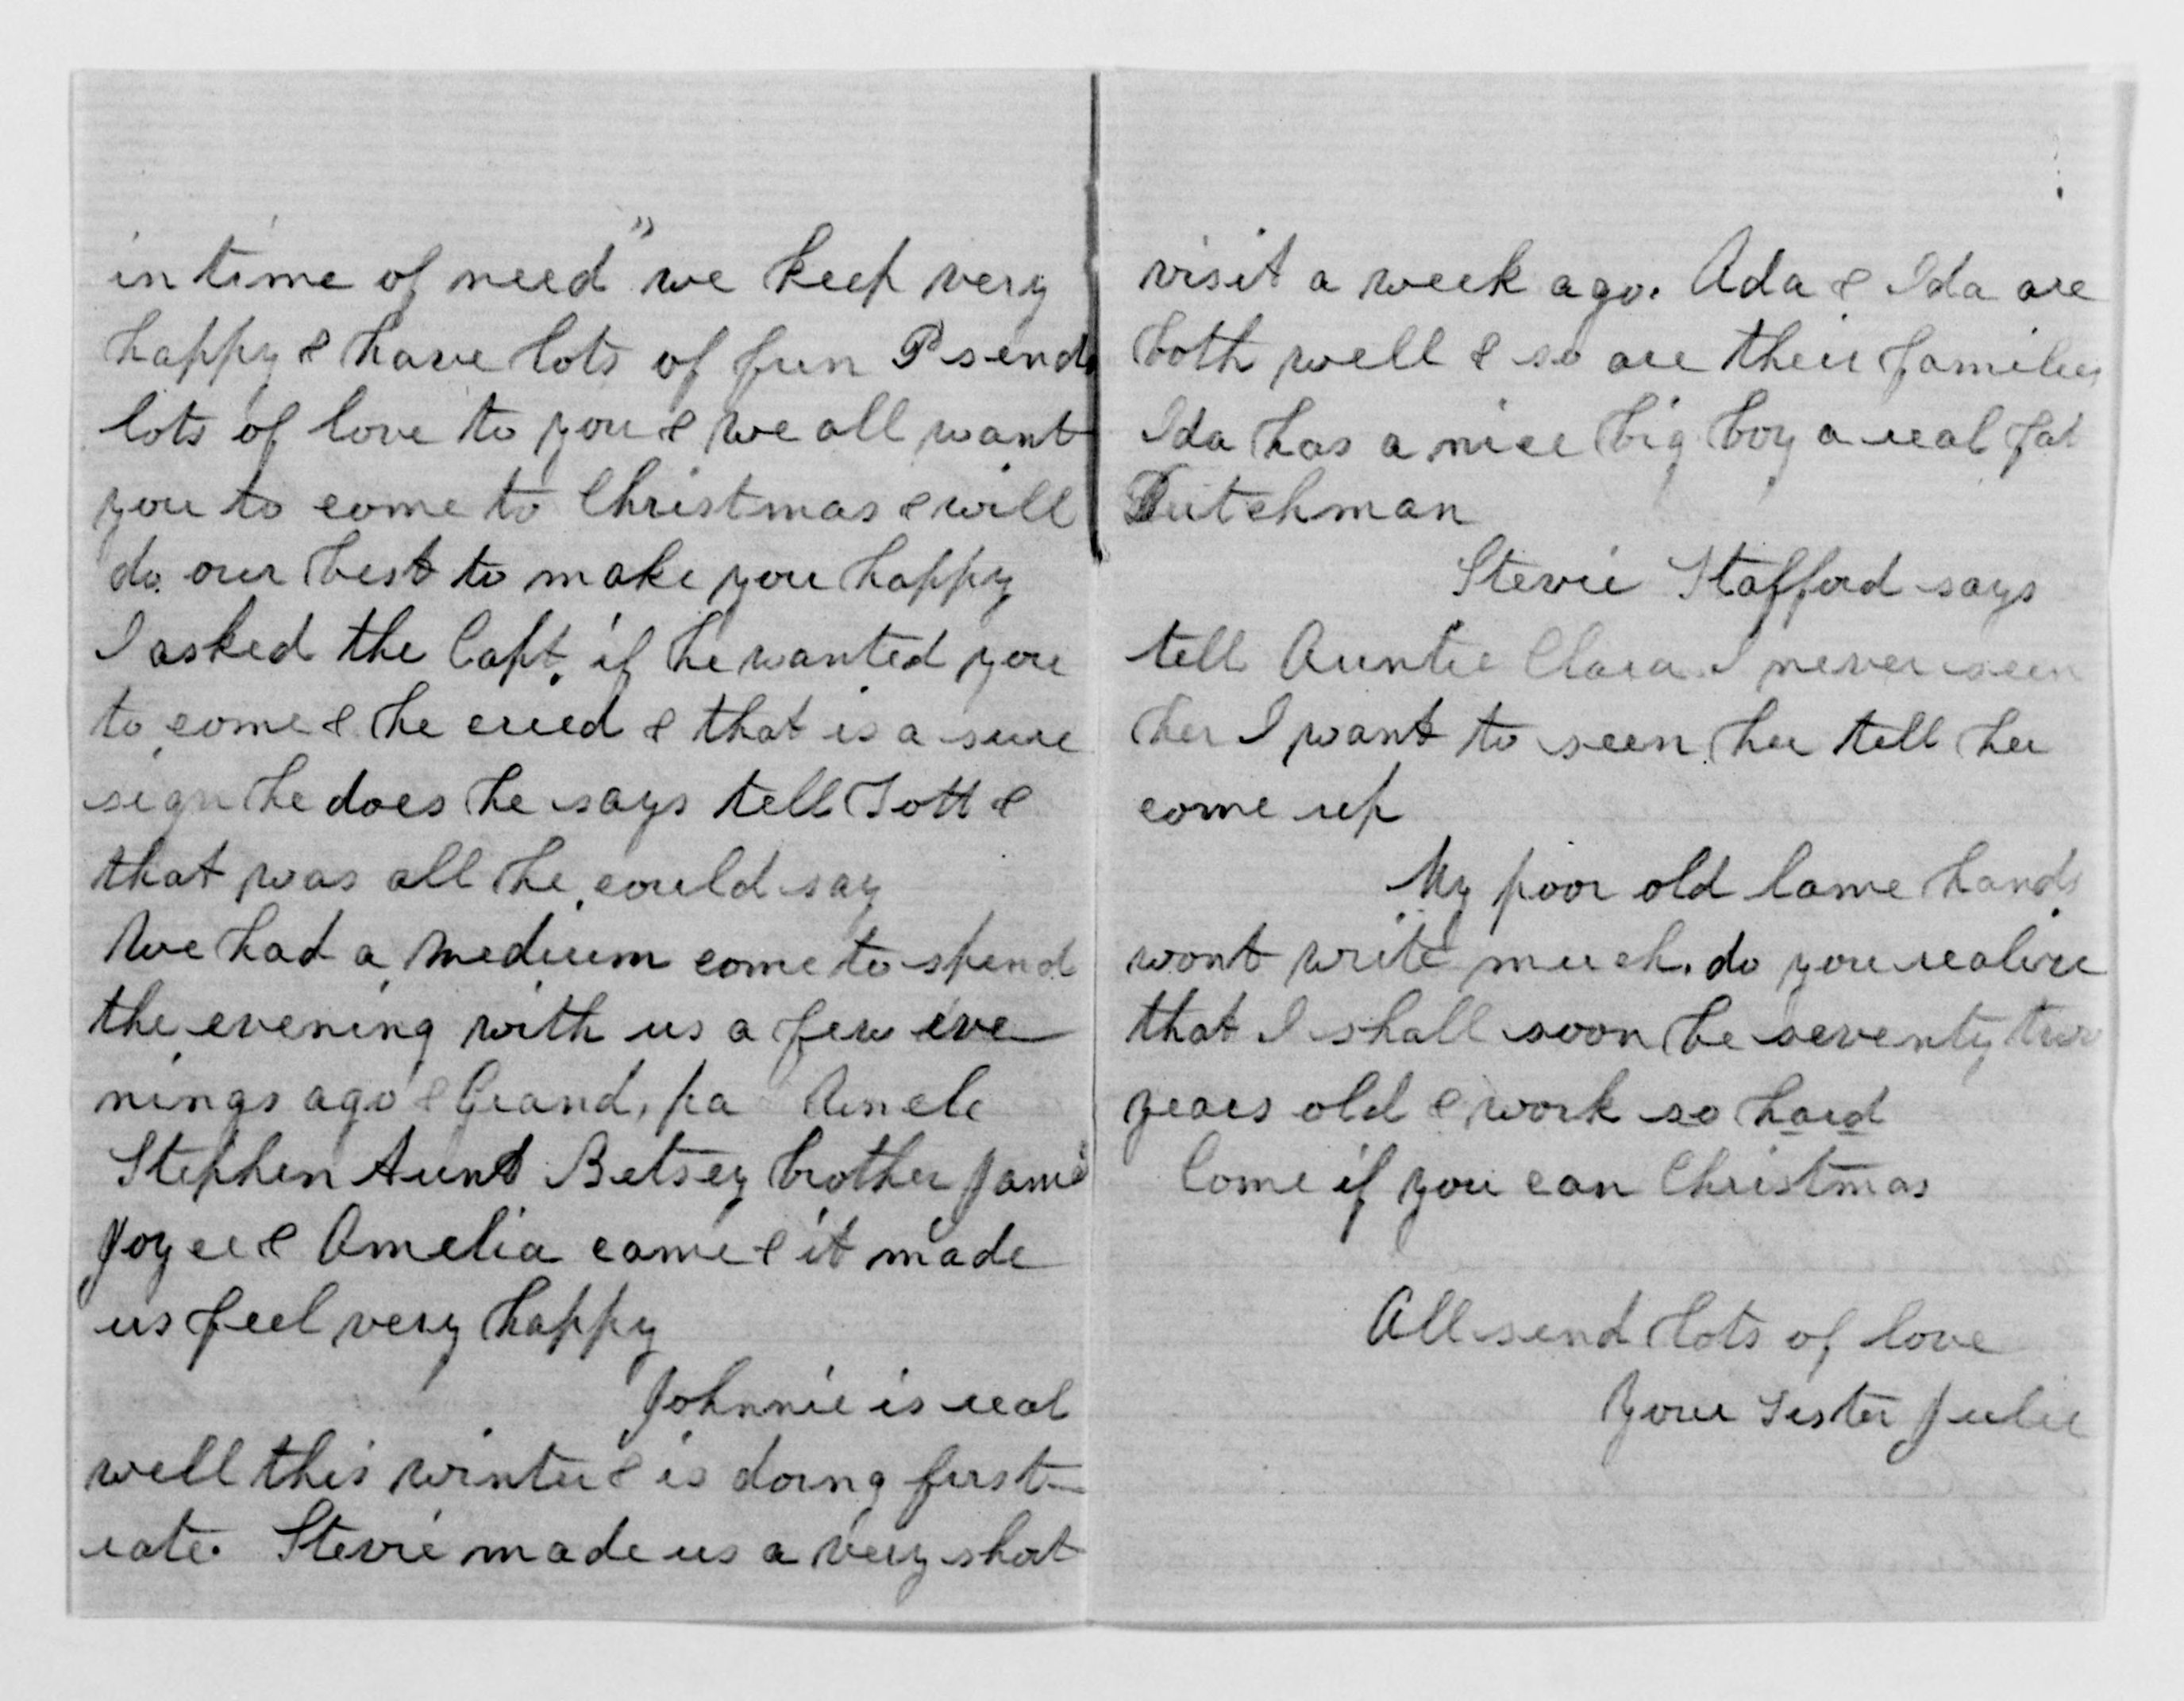 in time of need" we keep very
happy & have lots of fun P sends
lots of love to you & we all want
you to come to Christmas & will
do our best to make you happy
I asked the Capt. if he wanted you
to come & he cried & that is a sure
sign he does he says tell Tott &
that was all he could say
We had a medium come to spend
the evening with us a few eve
nings ago & Grand, pa Uncle
Stephen Aunt Betsey brother Jamie
Joyce & Amelia came & it made
us feel very happy
Johnnie is real
well this winter & is doing first-
rate. Stevie made us a very short
visit a week ago. Ada & Ida are
both well & so are their families
Ida has a nice big boy a real fat
Dutchman
Stevie Stafford says
tell Auntie Clara I never seen
her I want to seen her tell her
come up
My poor old lame hands
wont write much. do you realize
that I shall soon be seventy two
years old & work so hard
Come if you can Christmas
All send lots of love
Your sister Julie